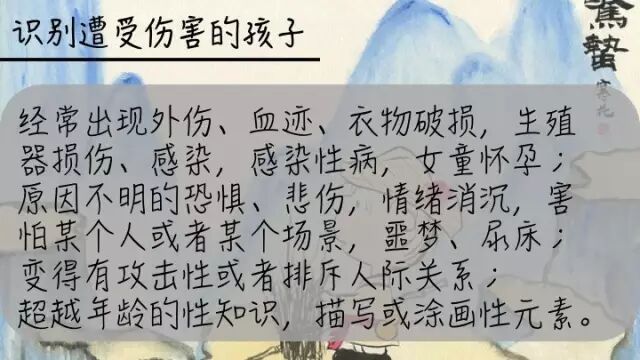 识别遭受伤害的孩子
驚蟄
经常出现外伤、血迹、衣物破损，生殖
器损伤、感染，感染性病，女童怀孕；
原因不明的恐惧、悲伤，情绪消沉，害
怕某个人或者某个场景，噩梦、尿床；
变得有攻击性或者排斥人际关系；
超越年龄的性知识，描写或涂画性元素。